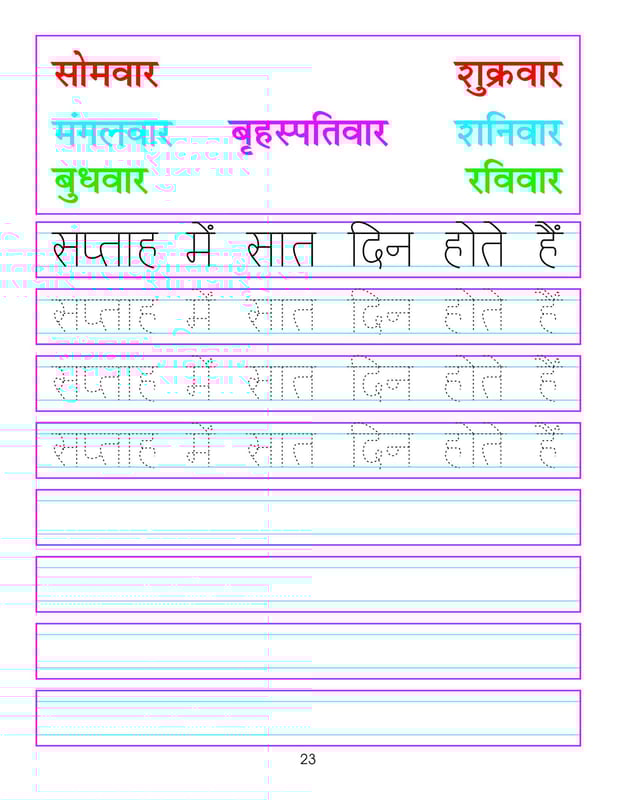 सोमवार शुक्रवार
मंगलवार बृहस्पतिवार शनिवार
बुधवार रविवार
सप्ताह में सात दिन होते हैं
सप्ताह में सात दिन होते हैं
सप्ताह में सात दिन होते हैं
सप्ताह में सात दिन होते हैं
23